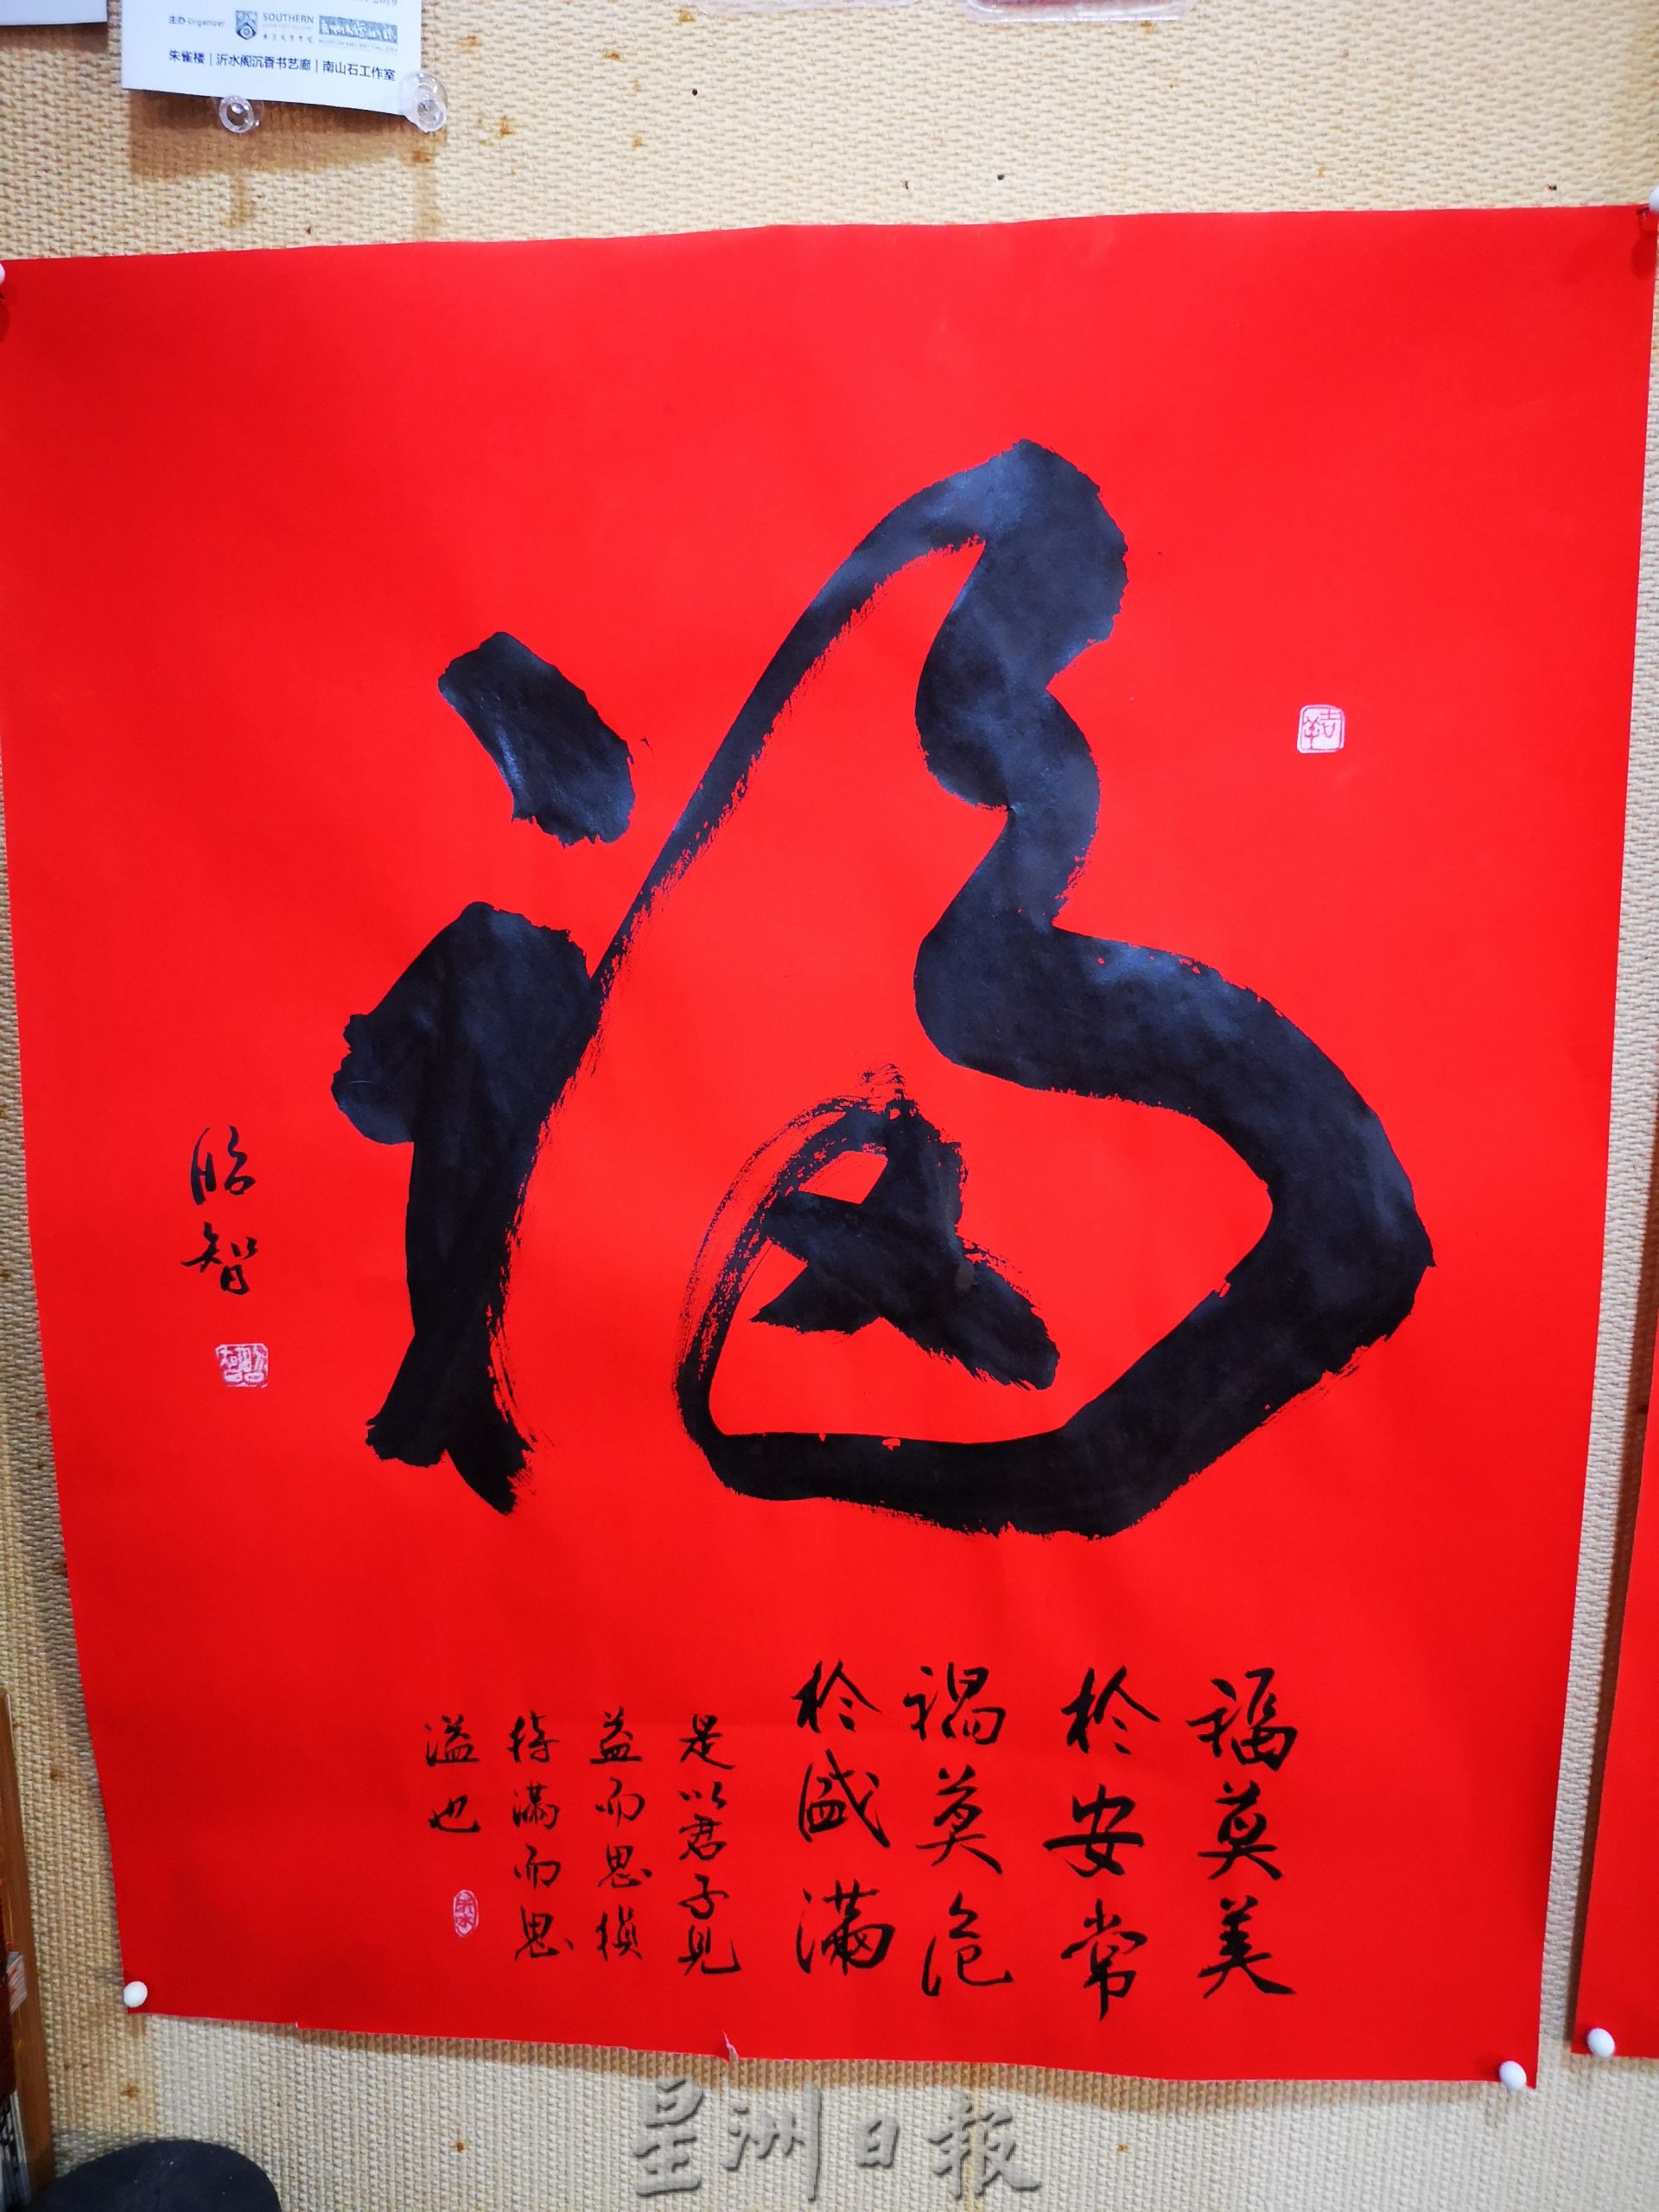 主办 Organizer
SOUTHERN
朱雀楼 | 沂水阁沉香书艺廊 | 南山石工作室
福
福莫美
於安常
禍莫危
於盛滿
是以君子見
益而思損
持滿而思
溢也
昭智
星洲日報